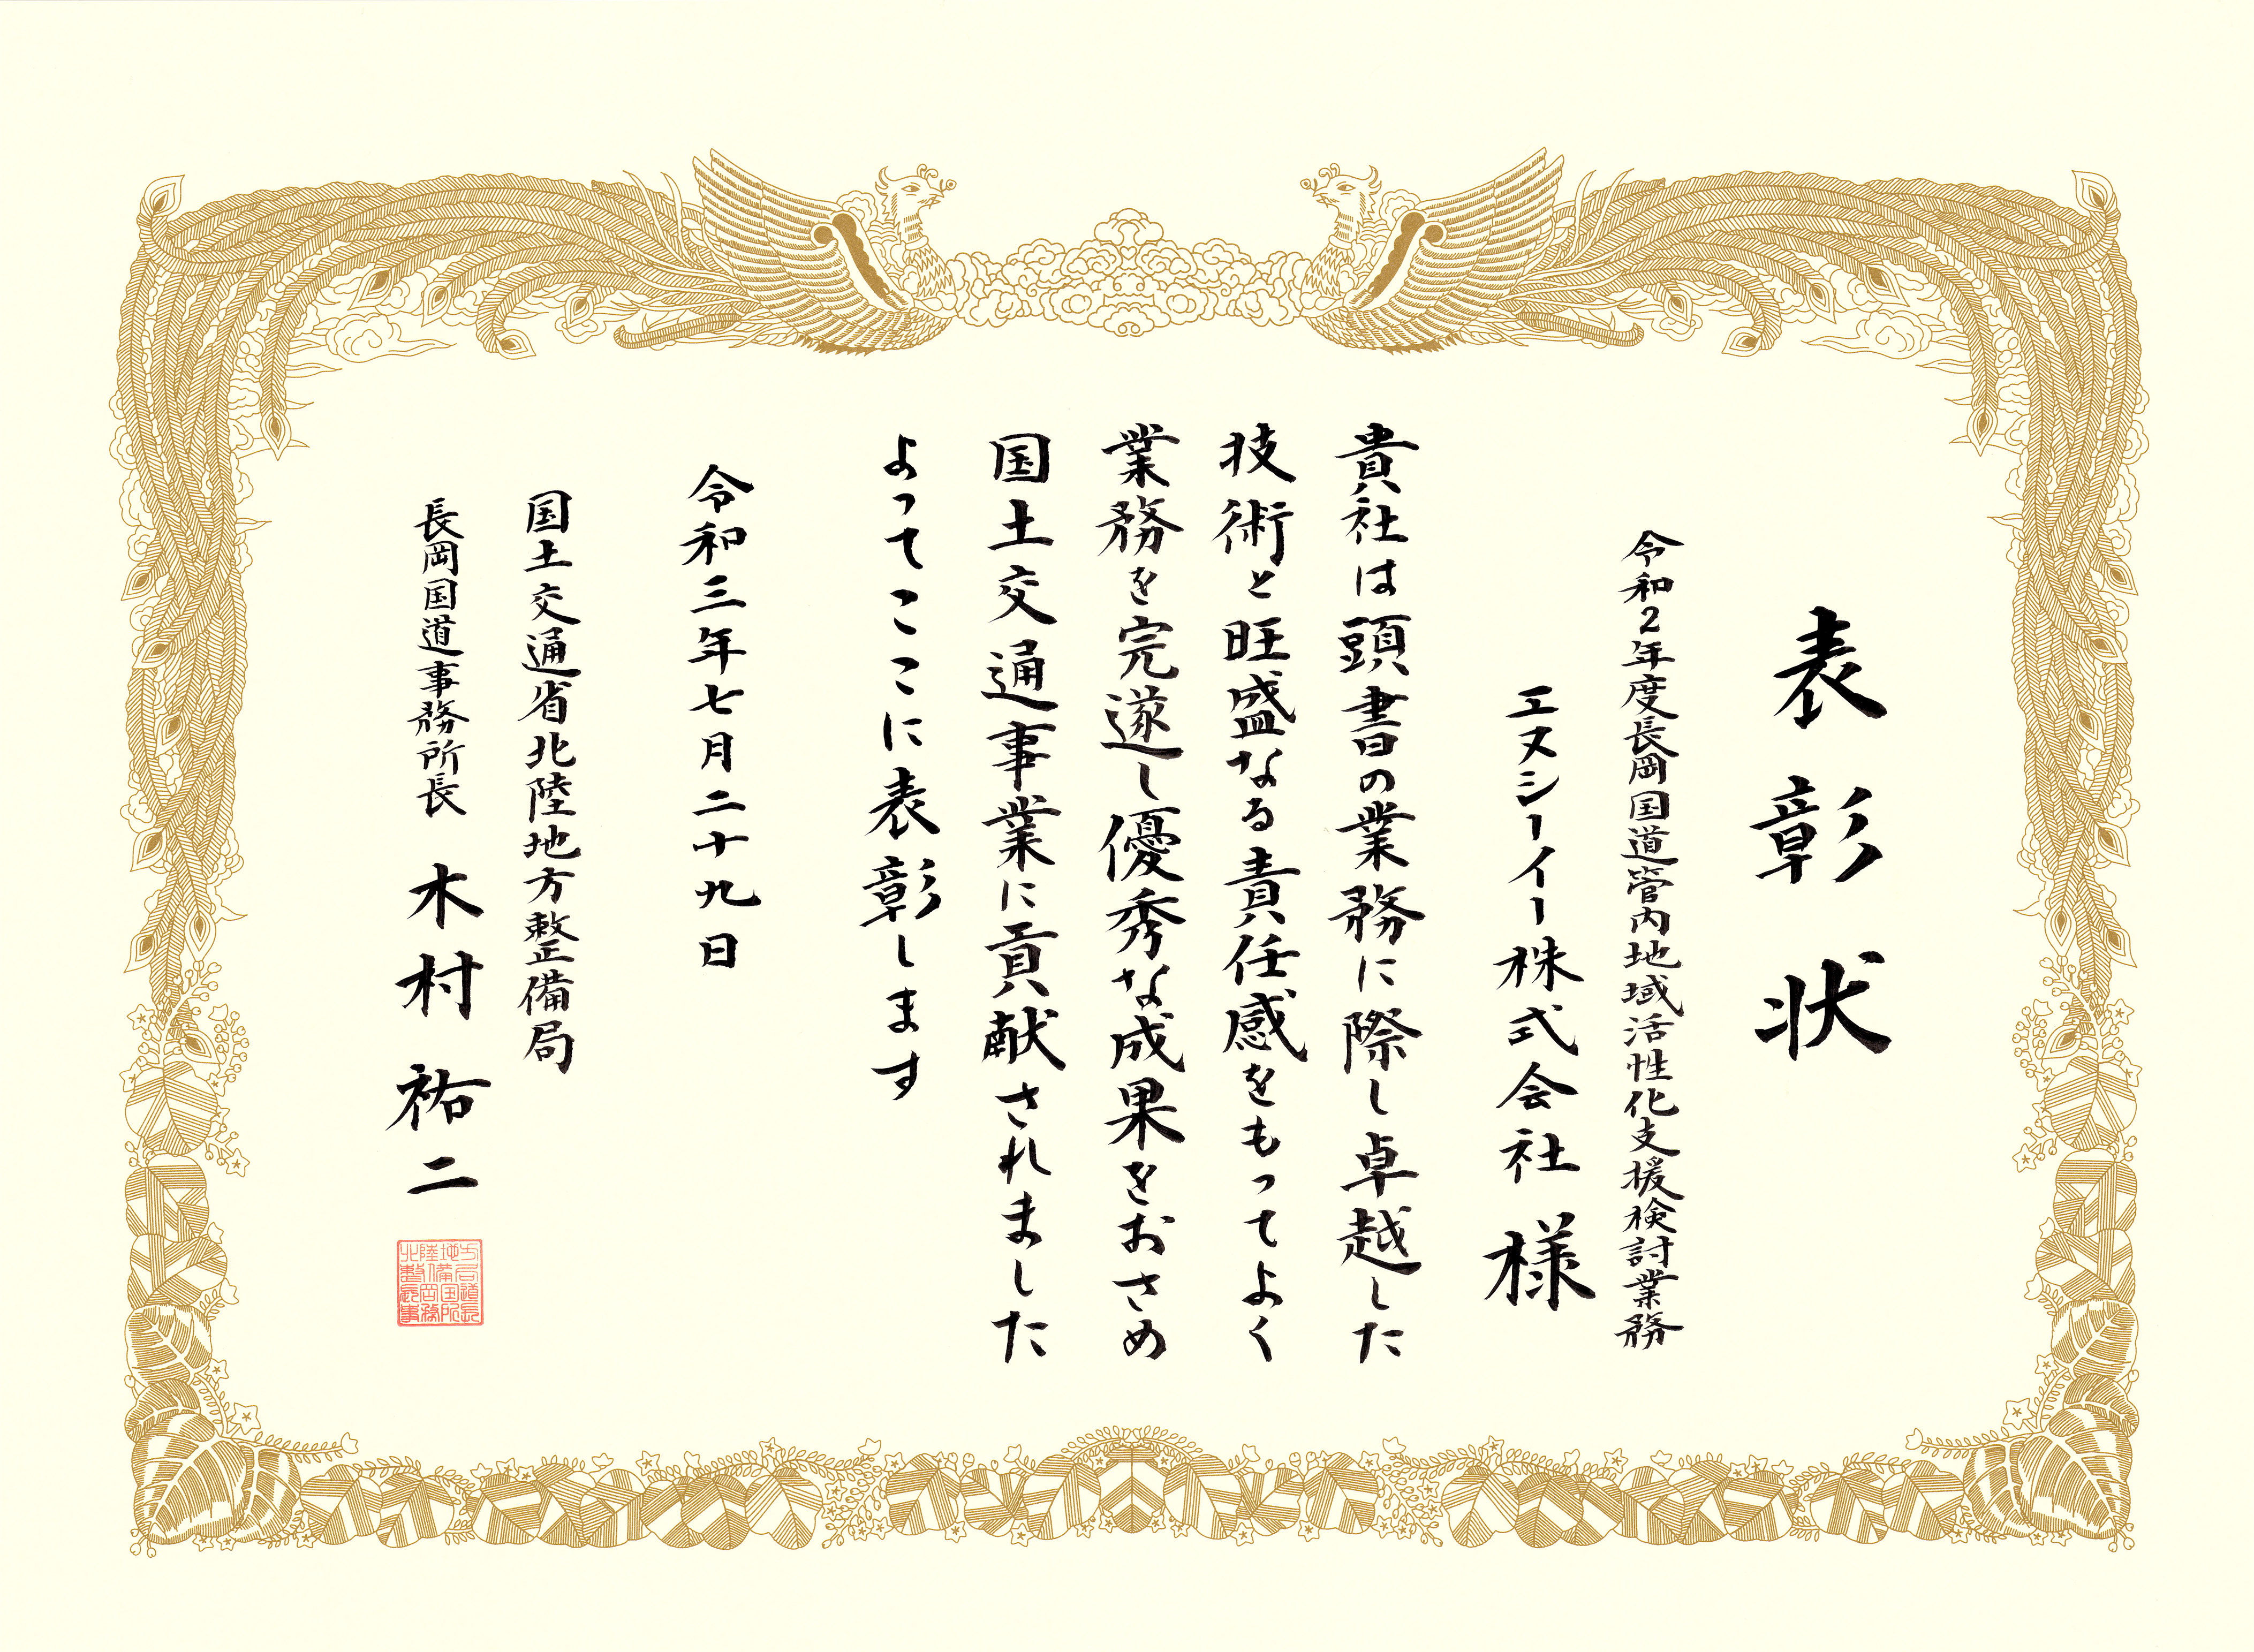 表彰状
令和2年度長岡国道管内地域活性化支援検討業務
エヌシーイー株式会社 様
貴社は頭書の業務に際し卓越した
技術と旺盛なる責任感をもってよく
業務を完遂し優秀な成果をおさめ
国土交通事業に貢献されました
よってここに表彰します
令和三年七月二十九日
国土交通省北陸地方整備局
長岡国道事務所長 木村祐二
北陸地方
整備局道
長岡国長
事務所